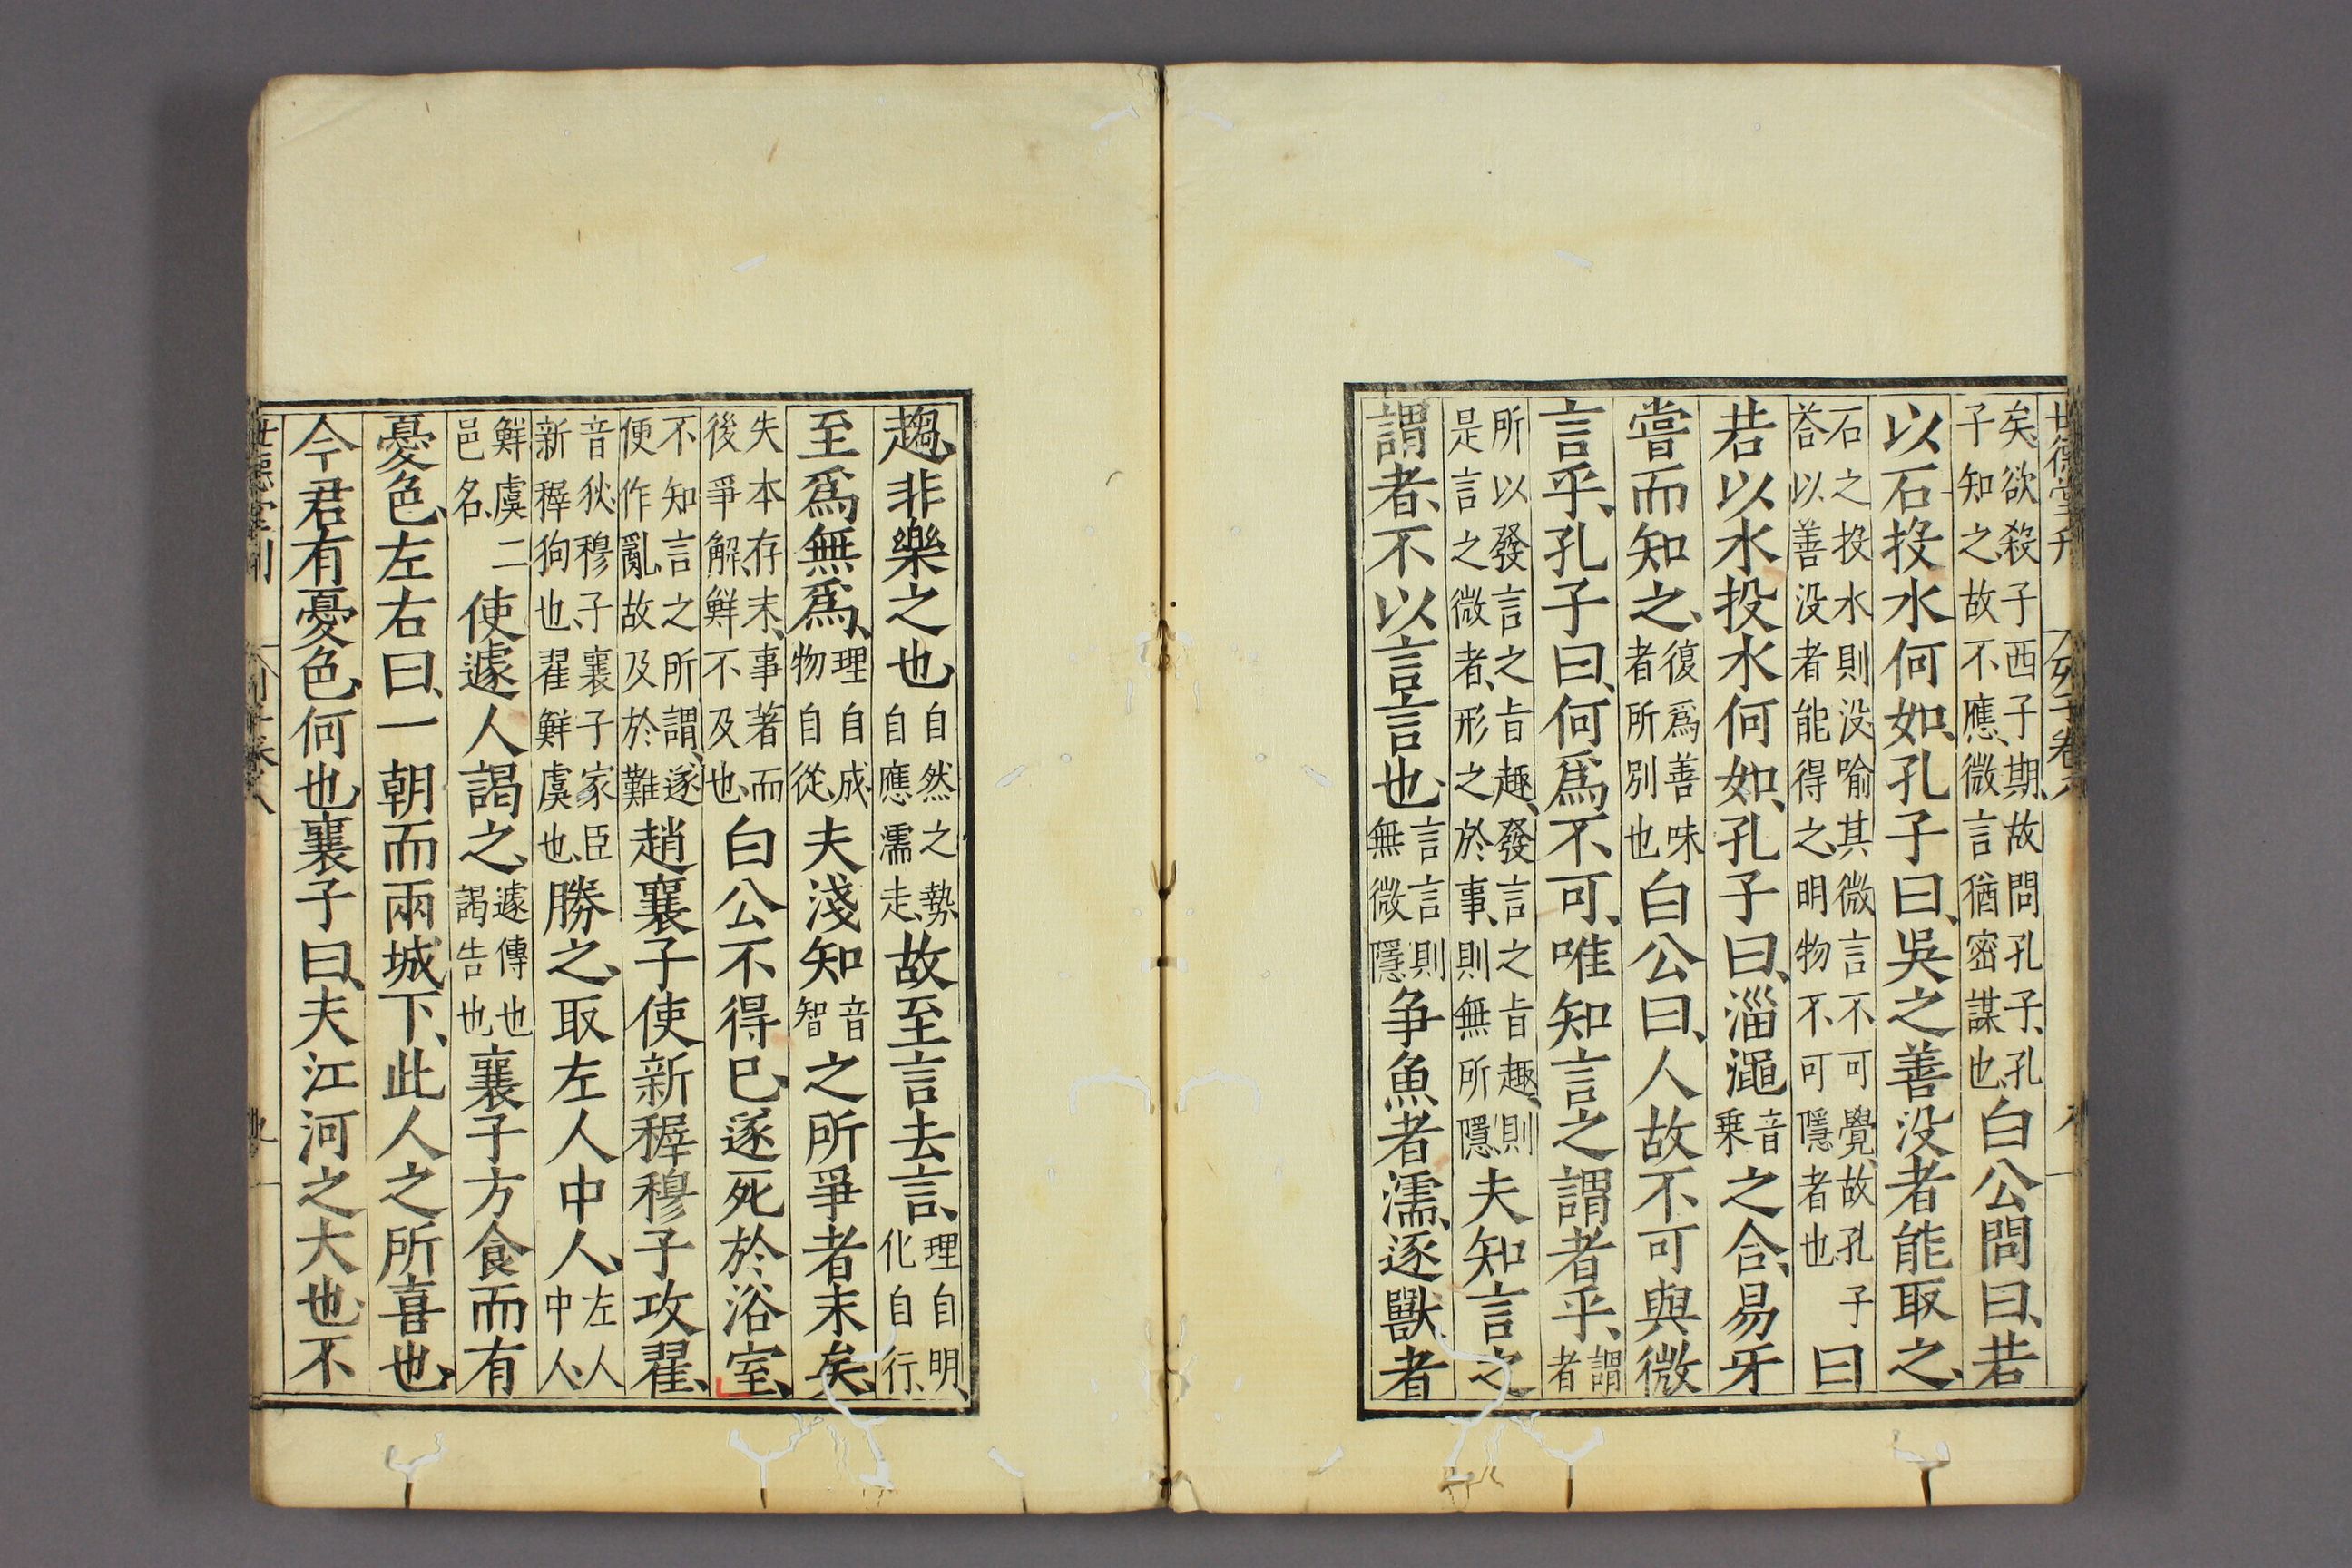 世德堂刊 列子卷八 八
矣欲殺子西子期故問孔子孔
子知之故不應微言猶密謀也白公問曰若
以石投水何如孔子曰吳之善没者能取之
石之投水則没喻其微言不可覺故孔子
荅以善没者能得之明物不可隱者也曰
若以水投水何如孔子曰淄澠音乗之合易牙
嘗而知之復爲善味者所別也白公曰人故不可與微
言乎孔子曰何爲不可唯知言之謂者乎謂者
所以發言之旨趣發言之旨趣則
是言之微者形之於事則無所隱夫知言之
謂者不以言言也言言則無微隱争魚者濡逐獸者
趨非樂之也自然之勢自應濡走故至言去言理自明化自行
至爲無爲理自成物自從夫淺知音智之所爭者末矣
失本存末事著而後爭解鮮不及也白公不得已遂死於浴室
不知言之所謂遂便作亂故及於難趙襄子使新穉穆子攻翟
音狄穆子襄子家臣新穉狗也翟鮮虞也勝之取左人中人左人中人
鮮虞二邑名使遽人謁之遽傳也謁告也襄子方食而有
憂色左右曰一朝而兩城下此人之所喜也
今君有憂色何也襄子曰夫江河之大也不
世德堂刊 列子卷八 九